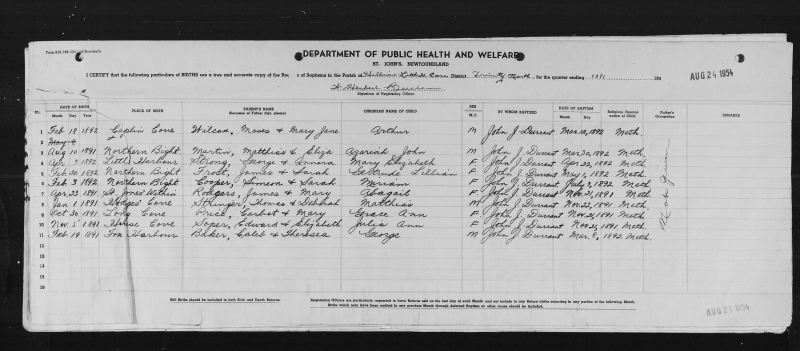 DEPARTMENT OF PUBLIC HEALTH AND WELFARE
ST. JOHN'S, NEWFOUNDLAND
I CERTIFY that the following particulars of BIRTHS are a true and accurate copy of the Rec s of Baptisms in the Parish of District Trinity North for the quarter ending 1891 194
AUG 24 1954
Signature of Registering Officer.
NO. DATE OF BIRTH PLACE OF BIRTH PARENT'S NAME CHRISTIAN NAME OF CHILD SEX BY WHOM BAPTIZED DATE OF BAPTISM Religious Denomination of Child Father's Occupation REMARKS
Month Day Year (Surname of Father first, please) M.F. Month Day Year
1 Feb 18 1892 Caplin Cove Wilcox, Moses & Mary Jane Arthur M John J Durrant Mar. 10, 1892 Meth.
2 May 8
3 Aug 10 1891 Northern Bight Martin, Matthias & Eliza Azariah John M John J. Durrant Mar. 30, 1892 Meth.
4 Apr 9 1892 Little Harbour Strong, George & Mary Elizabeth F John J. Durrant Apr. 22, 1892 Meth.
5 Feb 30 1892 Northern Bight Frost, James & Sarah Gertrude Lillian F John J. Durrant May 1, 1892 Meth.
6 Feb 3 1892 Northern Bight Cooper, Simeon & Sarah Miriam F John J. Durrant July 3, 1892 Meth.
7 Apr 23 1891 St. Jones Within Rodgers, James & Mary Abagail F John J. Durrant Nov. 21, 1891 Meth.
8 Jan 1 1891 Hodges Cove Stringer, Thomas & Deborah Matthias M John J. Durrant Nov. 22, 1891 Meth.
9 Oct 30 1891 Long Cove Price, & Mary Grace Ann F John J. Durrant Nov. 21, 1891 Meth.
10 Nov. 5 1891 Cove Soper, Edward & Elizabeth Julia Ann F John J. Durrant Nov. 21, 1891. Meth.
11 Feb 19 1891 Fox Harbour Baker, Caleb & Theresea George M John J. Durrant Mar. 8, 1892. Meth.
12
13
14
15
16
Still Births should be included in both Birth and Death Returns.
Registering Officers are particularly requested to forward Returns on the last day of each Month and not include in any Return births occurring in any portion of the following Month.
AUG 24 1954